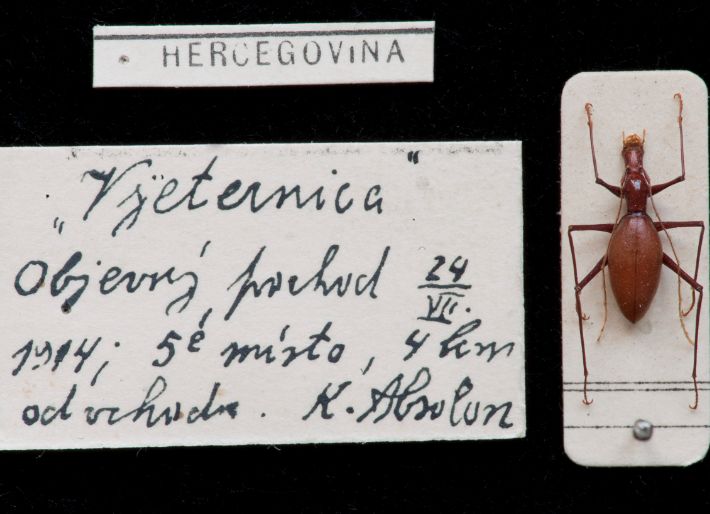 HERCEGOVINA
„Vjeternica"
Objevný pochod 24/VII.
1914; 5é místo, 4 km
od vchodu. K. Absolon